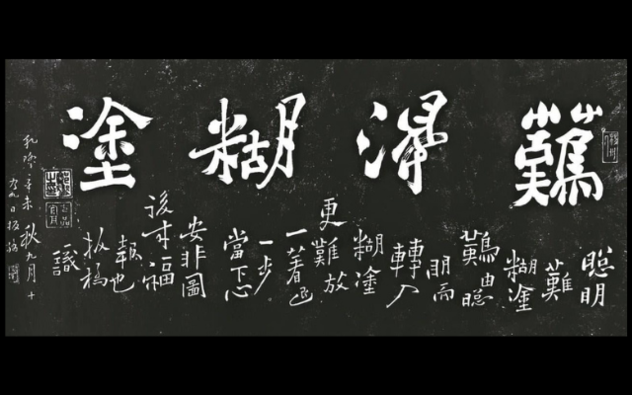 難得糊塗
聰明
難
糊塗
難由聰
明而
轉入
糊塗
更難放
一著退
一步
當下心
安非圖
後来福
報也
板橋
識
乾隆辛未秋九月十
九日板橋